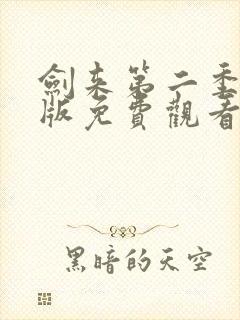 劍来第二季
版免費觀看
黑暗的天空